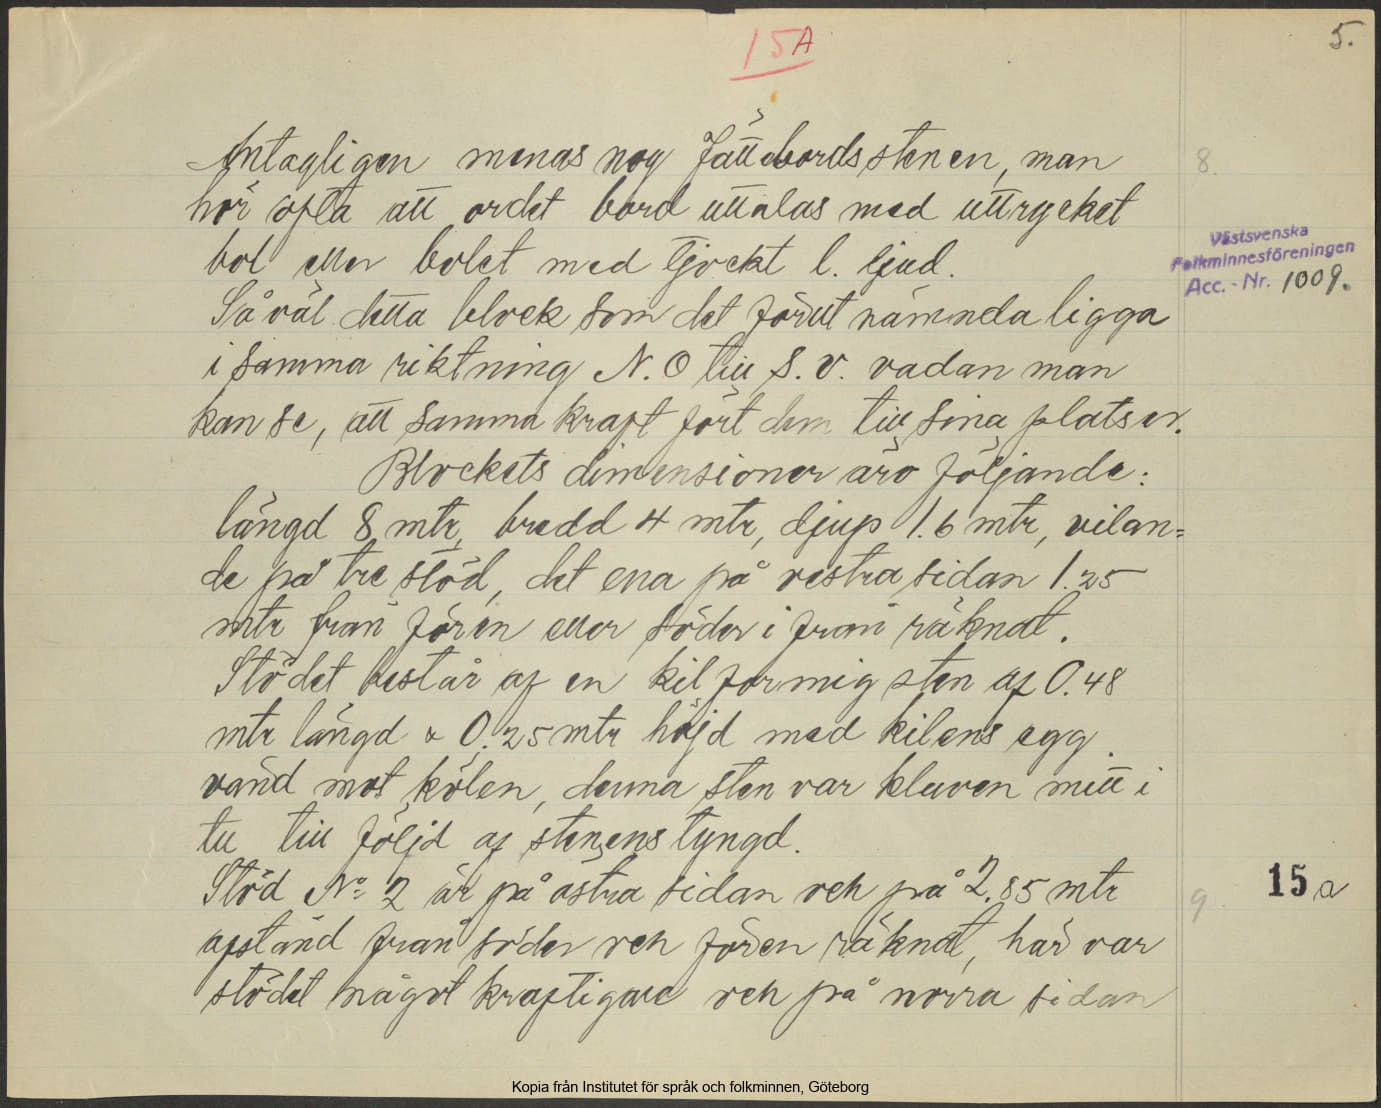 15A
5.
Antagligen menas nog Jättebordsstenen, man
hör ofta att ordet bord uttalas med uttrycket
bol eller bolet med tjockt l. ljud.
Så väl detta block som det förut nämnda ligga
i samma riktning N.O till S.V. vadan man
kan se, att samma kraft fört dem till sina platser.
Blockets dimensioner äro följande:
längd 8 mtr, bredd 4 mtr, djup 1.6 mtr, vilan=
de på tre stöd, det ena på vestra sidan 1.25
mtr från fören eller söder i från räknat.
Stödet består af en kilformig sten af 0.48
mtr längd x 0.25 mtr höjd med kilens egg
vänd mot kölen, denna sten var kluven mitt i
tu till följd af stenens tyngd.
Stöd No 2 är på östra sidan och på 2.85 mtr
afstånd från söder och fören räknat, här var
stödet något kraftigare och på norra sidan
8.
Västsvenska
Folkminnesföreningen
Acc.-Nr. 1009.
9
15 a
Kopia från Institutet för språk och folkminnen, Göteborg